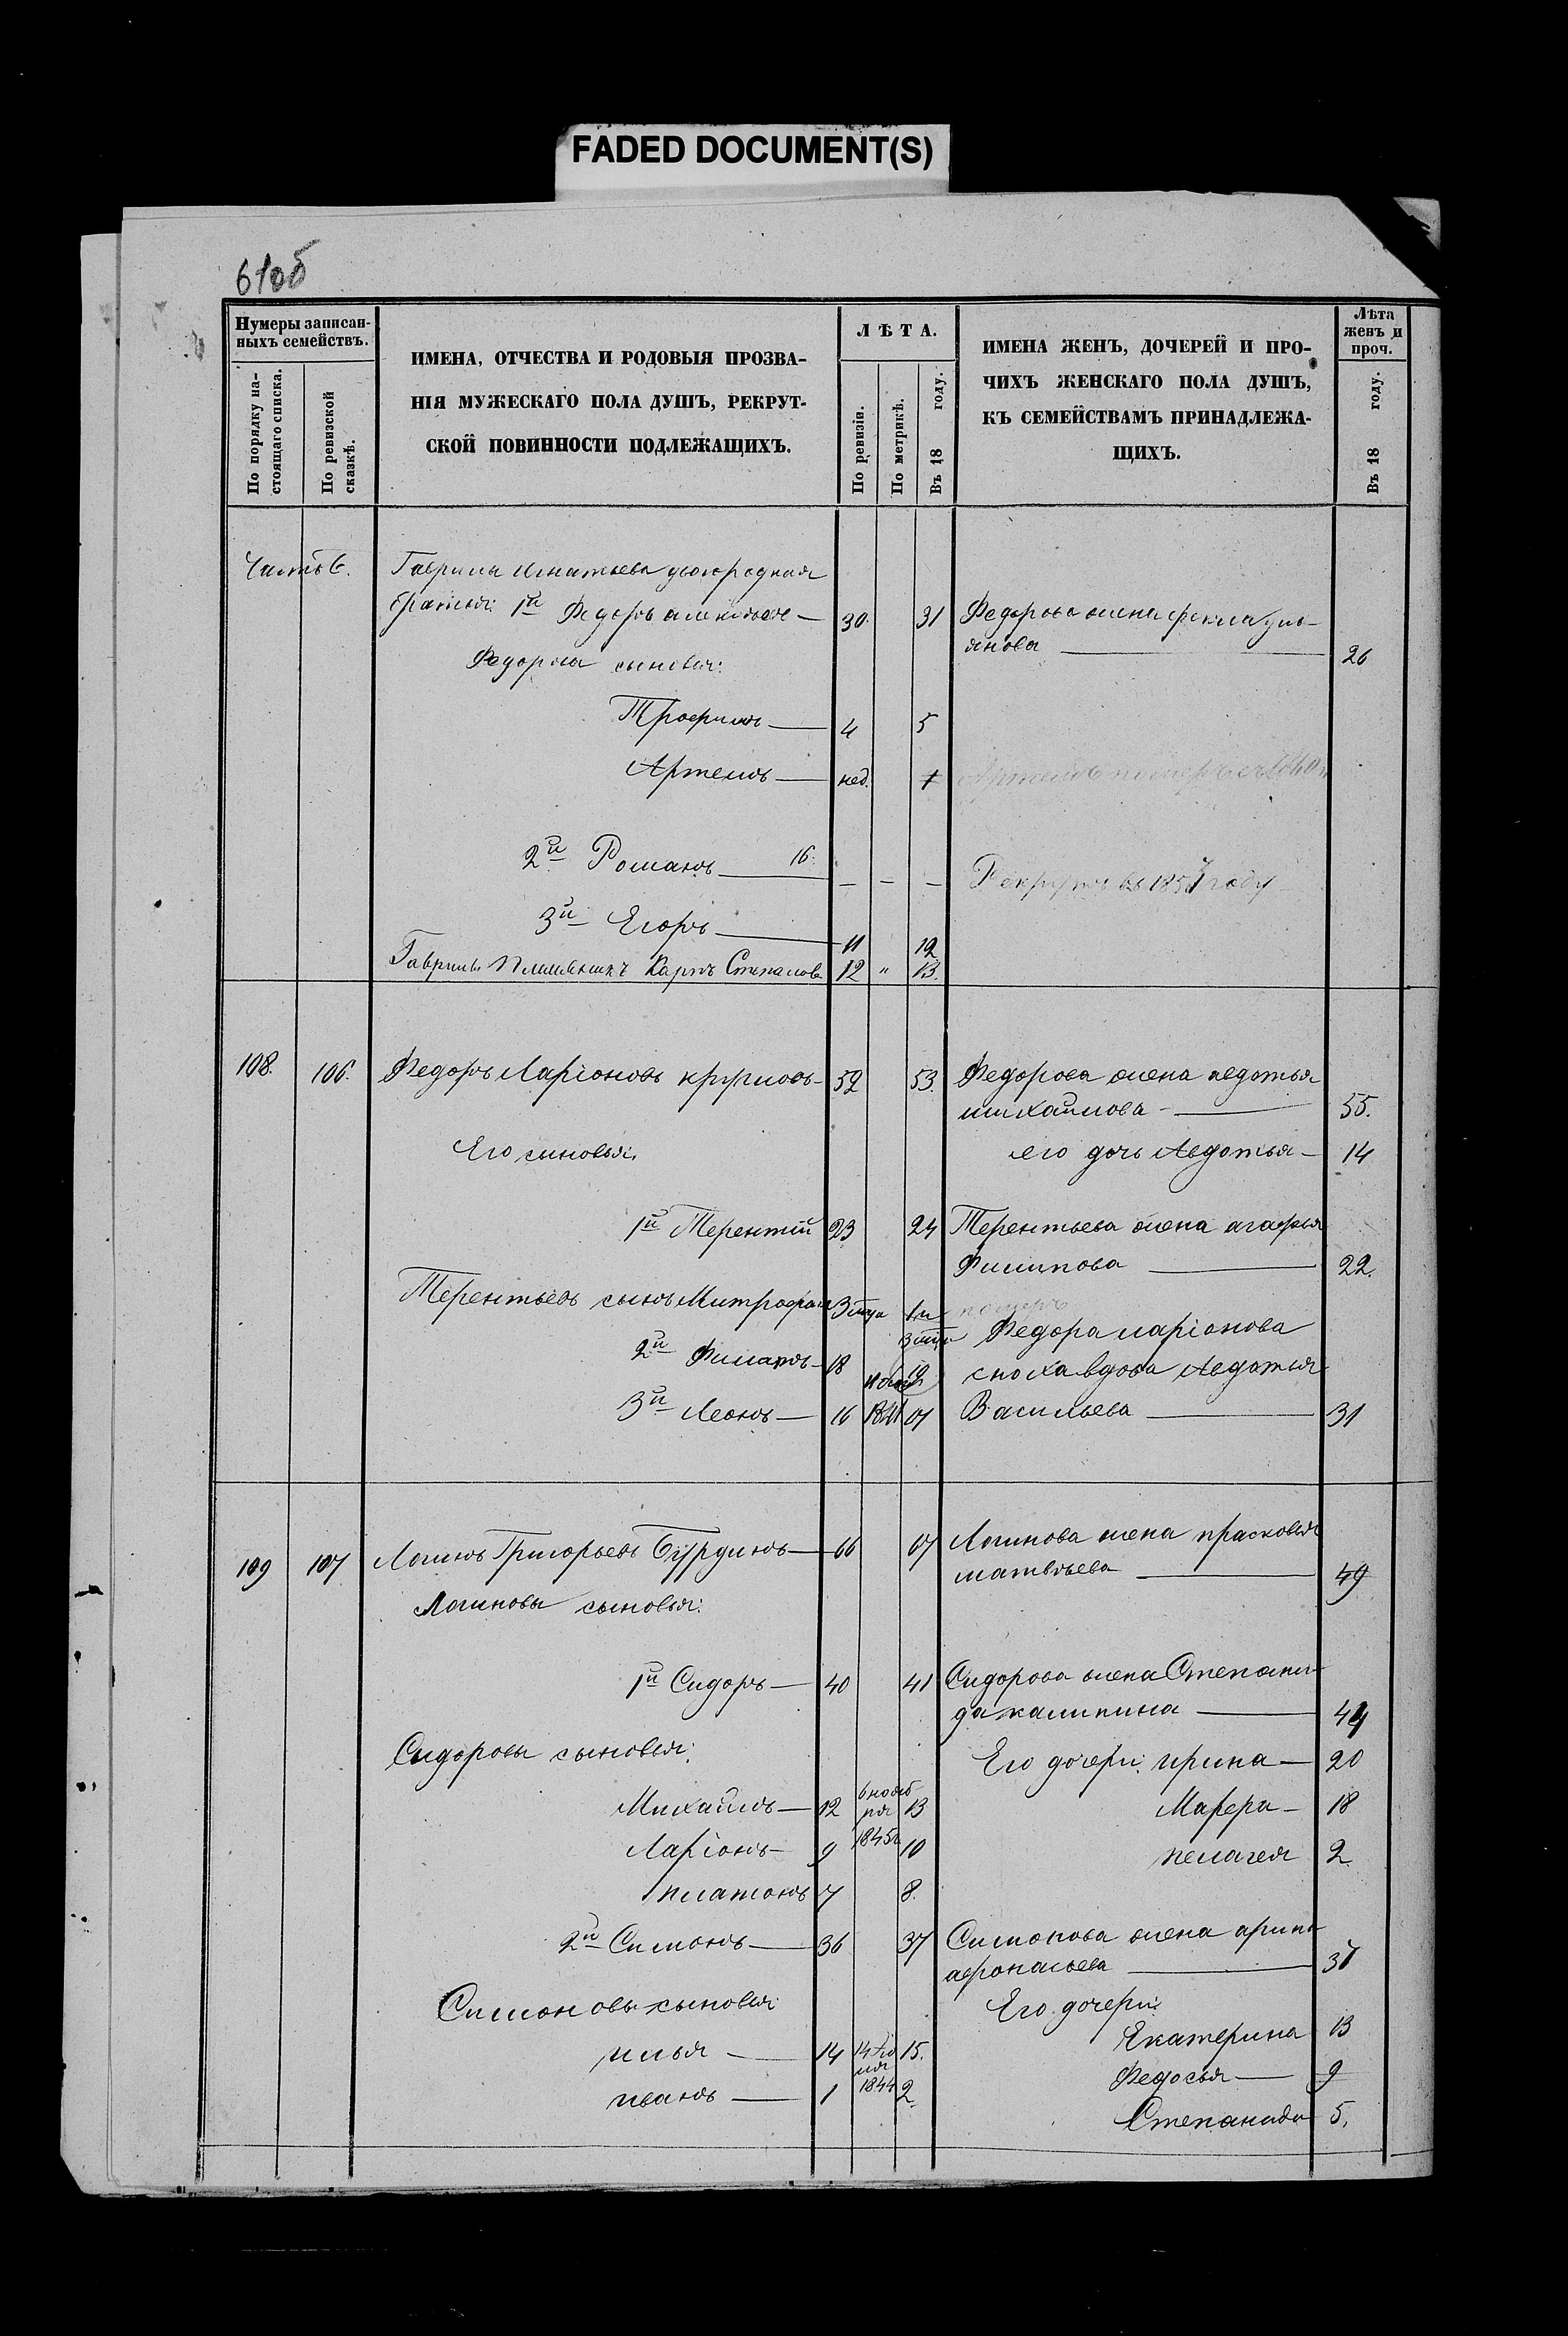 FADED DOCUMENT(S)
610б
Нумеры записан-
ныхъ семействъ.
По порядку на-
стоящаго списка.
По ревизской
сказкѣ.
ИМЕНА, ОТЧЕСТВА И РОДОВЫЯ ПРОЗВА-
НІЯ МУЖЕСКАГО ПОЛА ДУШЪ, РЕКРУТ-
СКОЙ ПОВИННОСТИ ПОДЛЕЖАЩИХЪ.
ЛѢТА.
По ревизіи.
По метрикѣ.
Въ 18 году.
ИМЕНА ЖЕНЪ, ДОЧЕРЕЙ И ПРО-
ЧИХЪ ЖЕНСКАГО ПОЛА ДУШЪ,
КЪ СЕМЕЙСТВАМЪ ПРИНАДЛЕЖА-
ЩИХЪ.
Лѣта
женъ и
проч.
Въ 18 году.
Гаврилы Игнатьева двоюродныя
братья: 1й Федоръ — 30. 31 Федорова жена фекла уль-
янова — 26
Федорова сыновья:
Трофимъ — 4 5
Артемъ — нед.
2й Романъ 16. — — — Рекрутъ въ 1857 году
3й Егоръ — 11 12
Гаврилы племянникъ Карпъ Степановъ 12 " 13.
108. 106. Федоръ Ларіоновъ — 52 53. Федорова жена авдотья
михайлова — 55.
Его сыновья: его дочь Авдотья — 14
1й Терентій 23 24 Терентьева жена агафья
Филипова — 22.
Терентьевъ сынъ Митрофанъ 3 мца померъ
Федора ларіонова
2й Филатъ — 18 19 сноха вдова Авдотья
3й Леонъ — 16 1841 Васильева — 31
109 107 Логинъ Григорьевъ Бурдинъ — 66 67 Логинова жена прасковья
матвѣева — 49
Логиновы сыновья:
1й Сидоръ — 40 41 Сидорова жена Степани-
да калинина — 44
Сидоровы сыновья: Его дочери: ирина — 20
Михаилъ — 12 6 нояб
ря 1845г 13 Марфа — 18
Ларіонъ — 9 10 пелагея 2
платонъ 7 8.
2й Симонъ — 36 37 Симонова жена арина
афонасьева — 37
Симоновы сыновья: Его дочери:
Екатерина 13
илья — 14 14 Ію
ля 1844 15.
Федосья — 9
иванъ — 1 2.
Степанида 5.